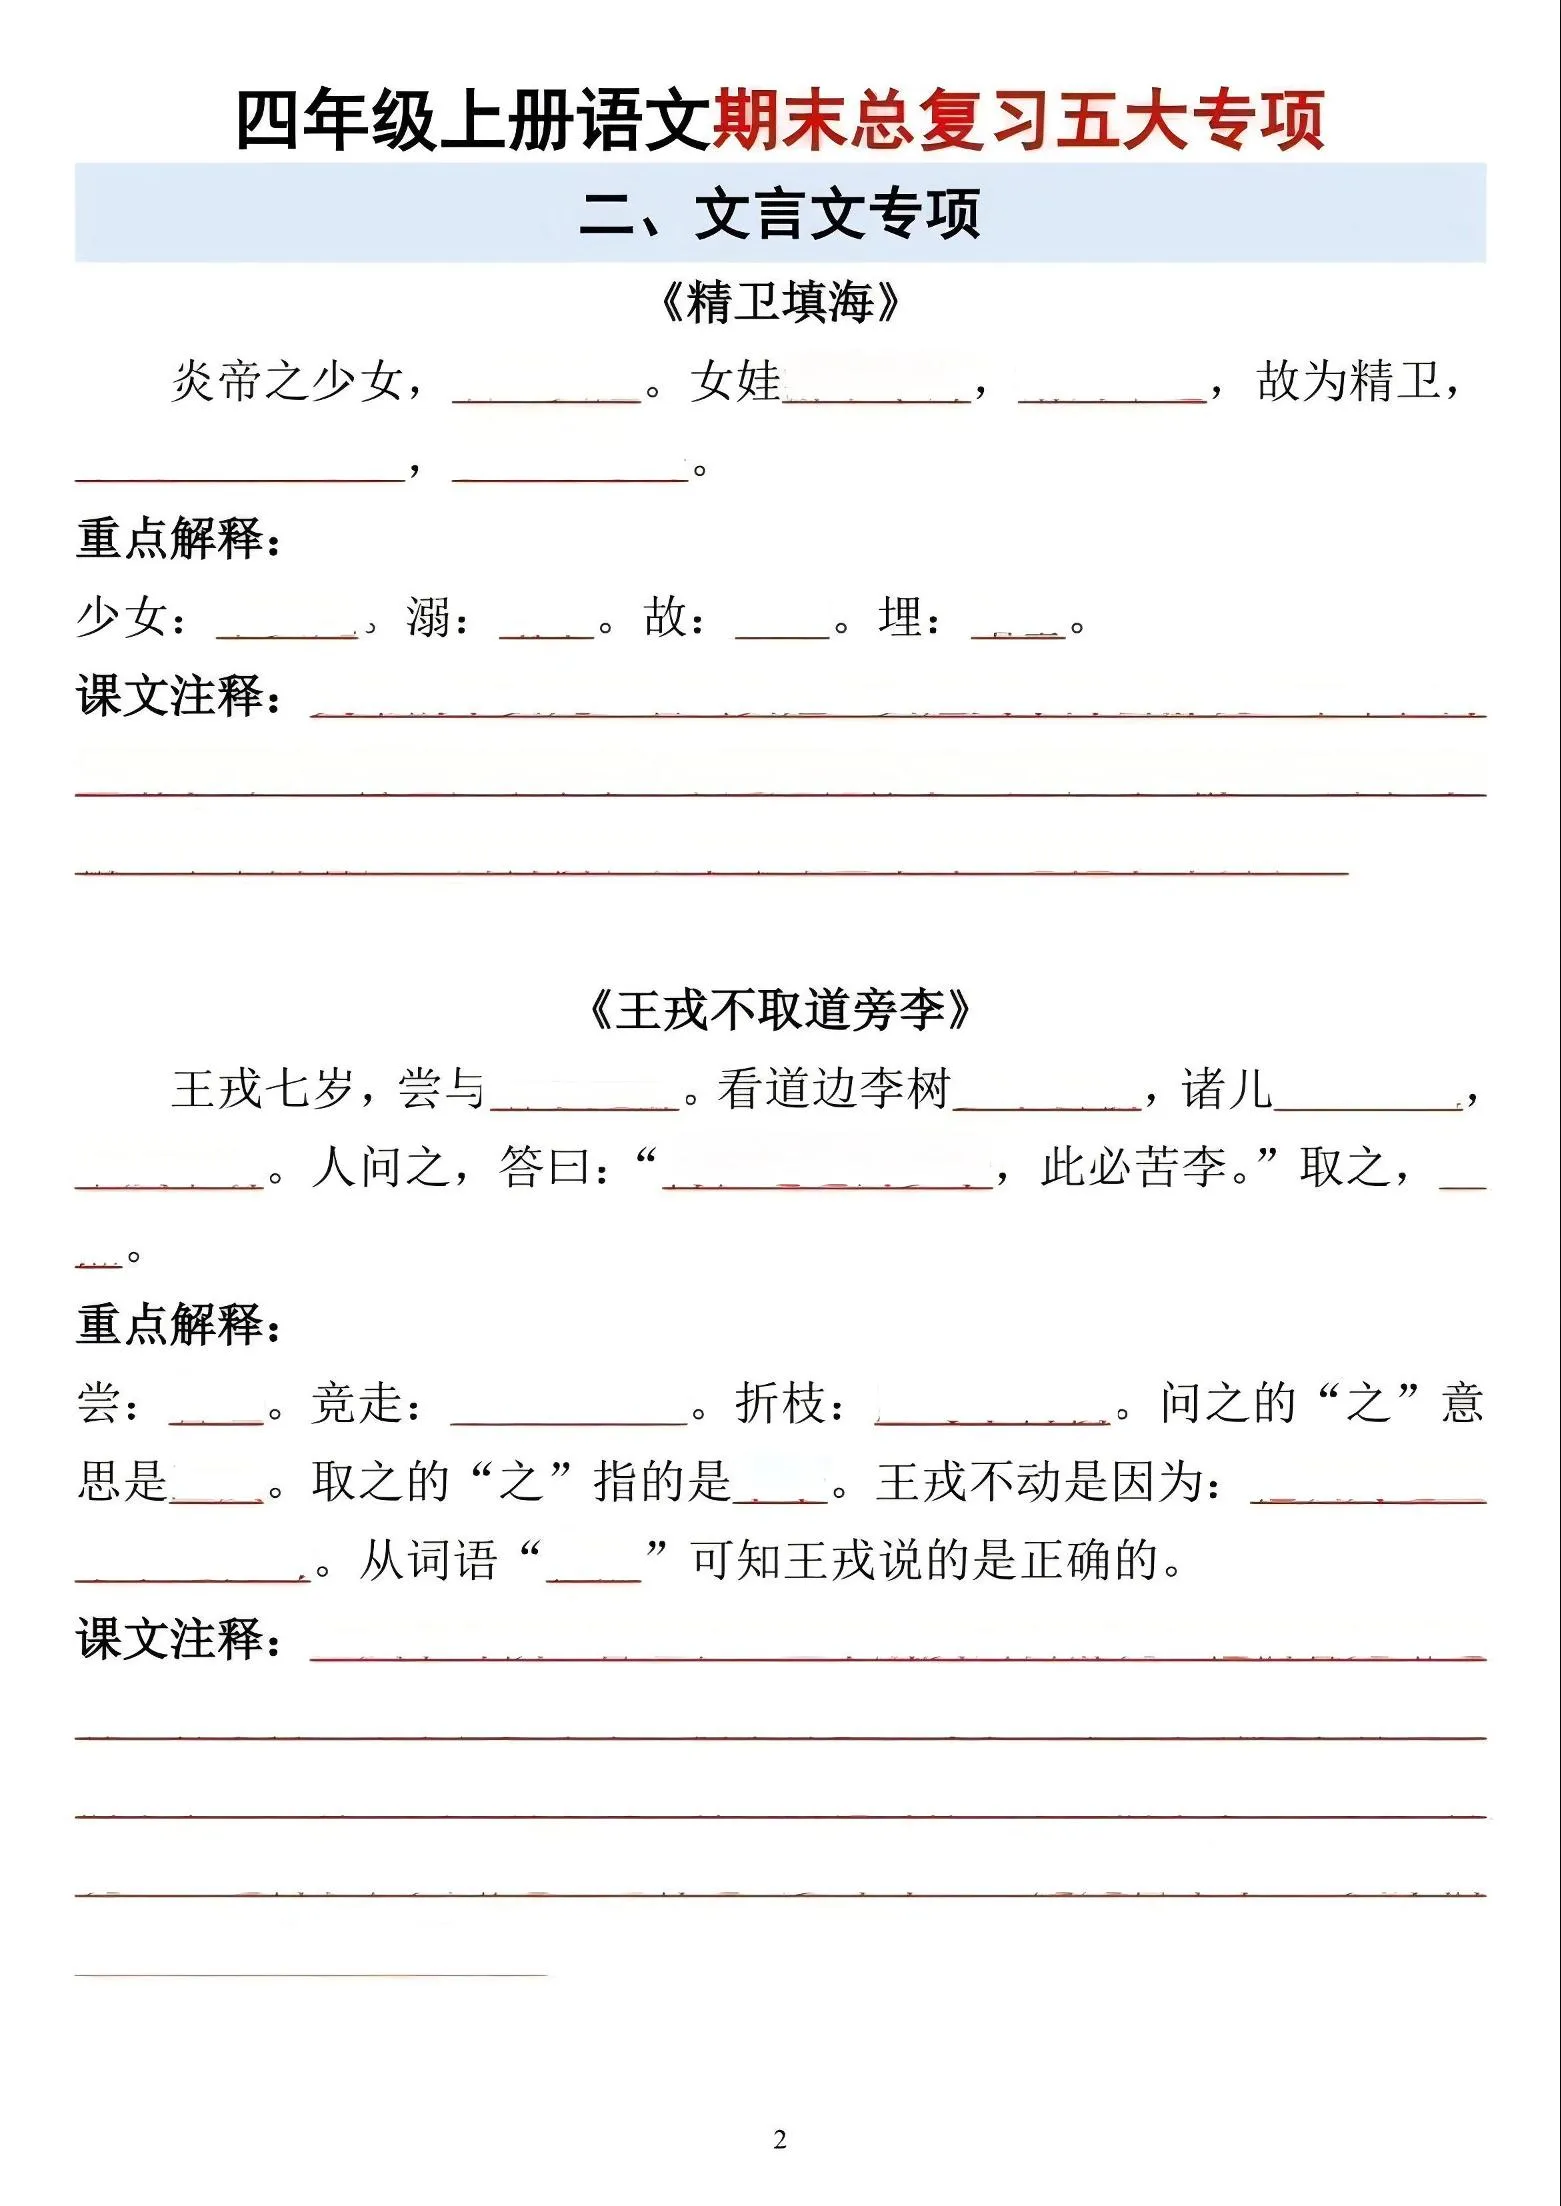 四年级上册语文期末总复习五大专项
二、文言文专项
《精卫填海》
炎帝之少女，________。女娃________，________，故为精卫，
______________，__________。
重点解释：
少女：______。溺：____。故：____。埋：____。
课文注释：
《王戎不取道旁李》
王戎七岁，尝与________。看道边李树________，诸儿________，
________。人问之，答曰：“______________，此必苦李。”取之，__
__。
重点解释：
尝：____。竞走：__________。折枝：__________。问之的“之”意
思是____。取之的“之”指的是____。王戎不动是因为：__________
__________。从词语“____”可知王戎说的是正确的。
课文注释：
2